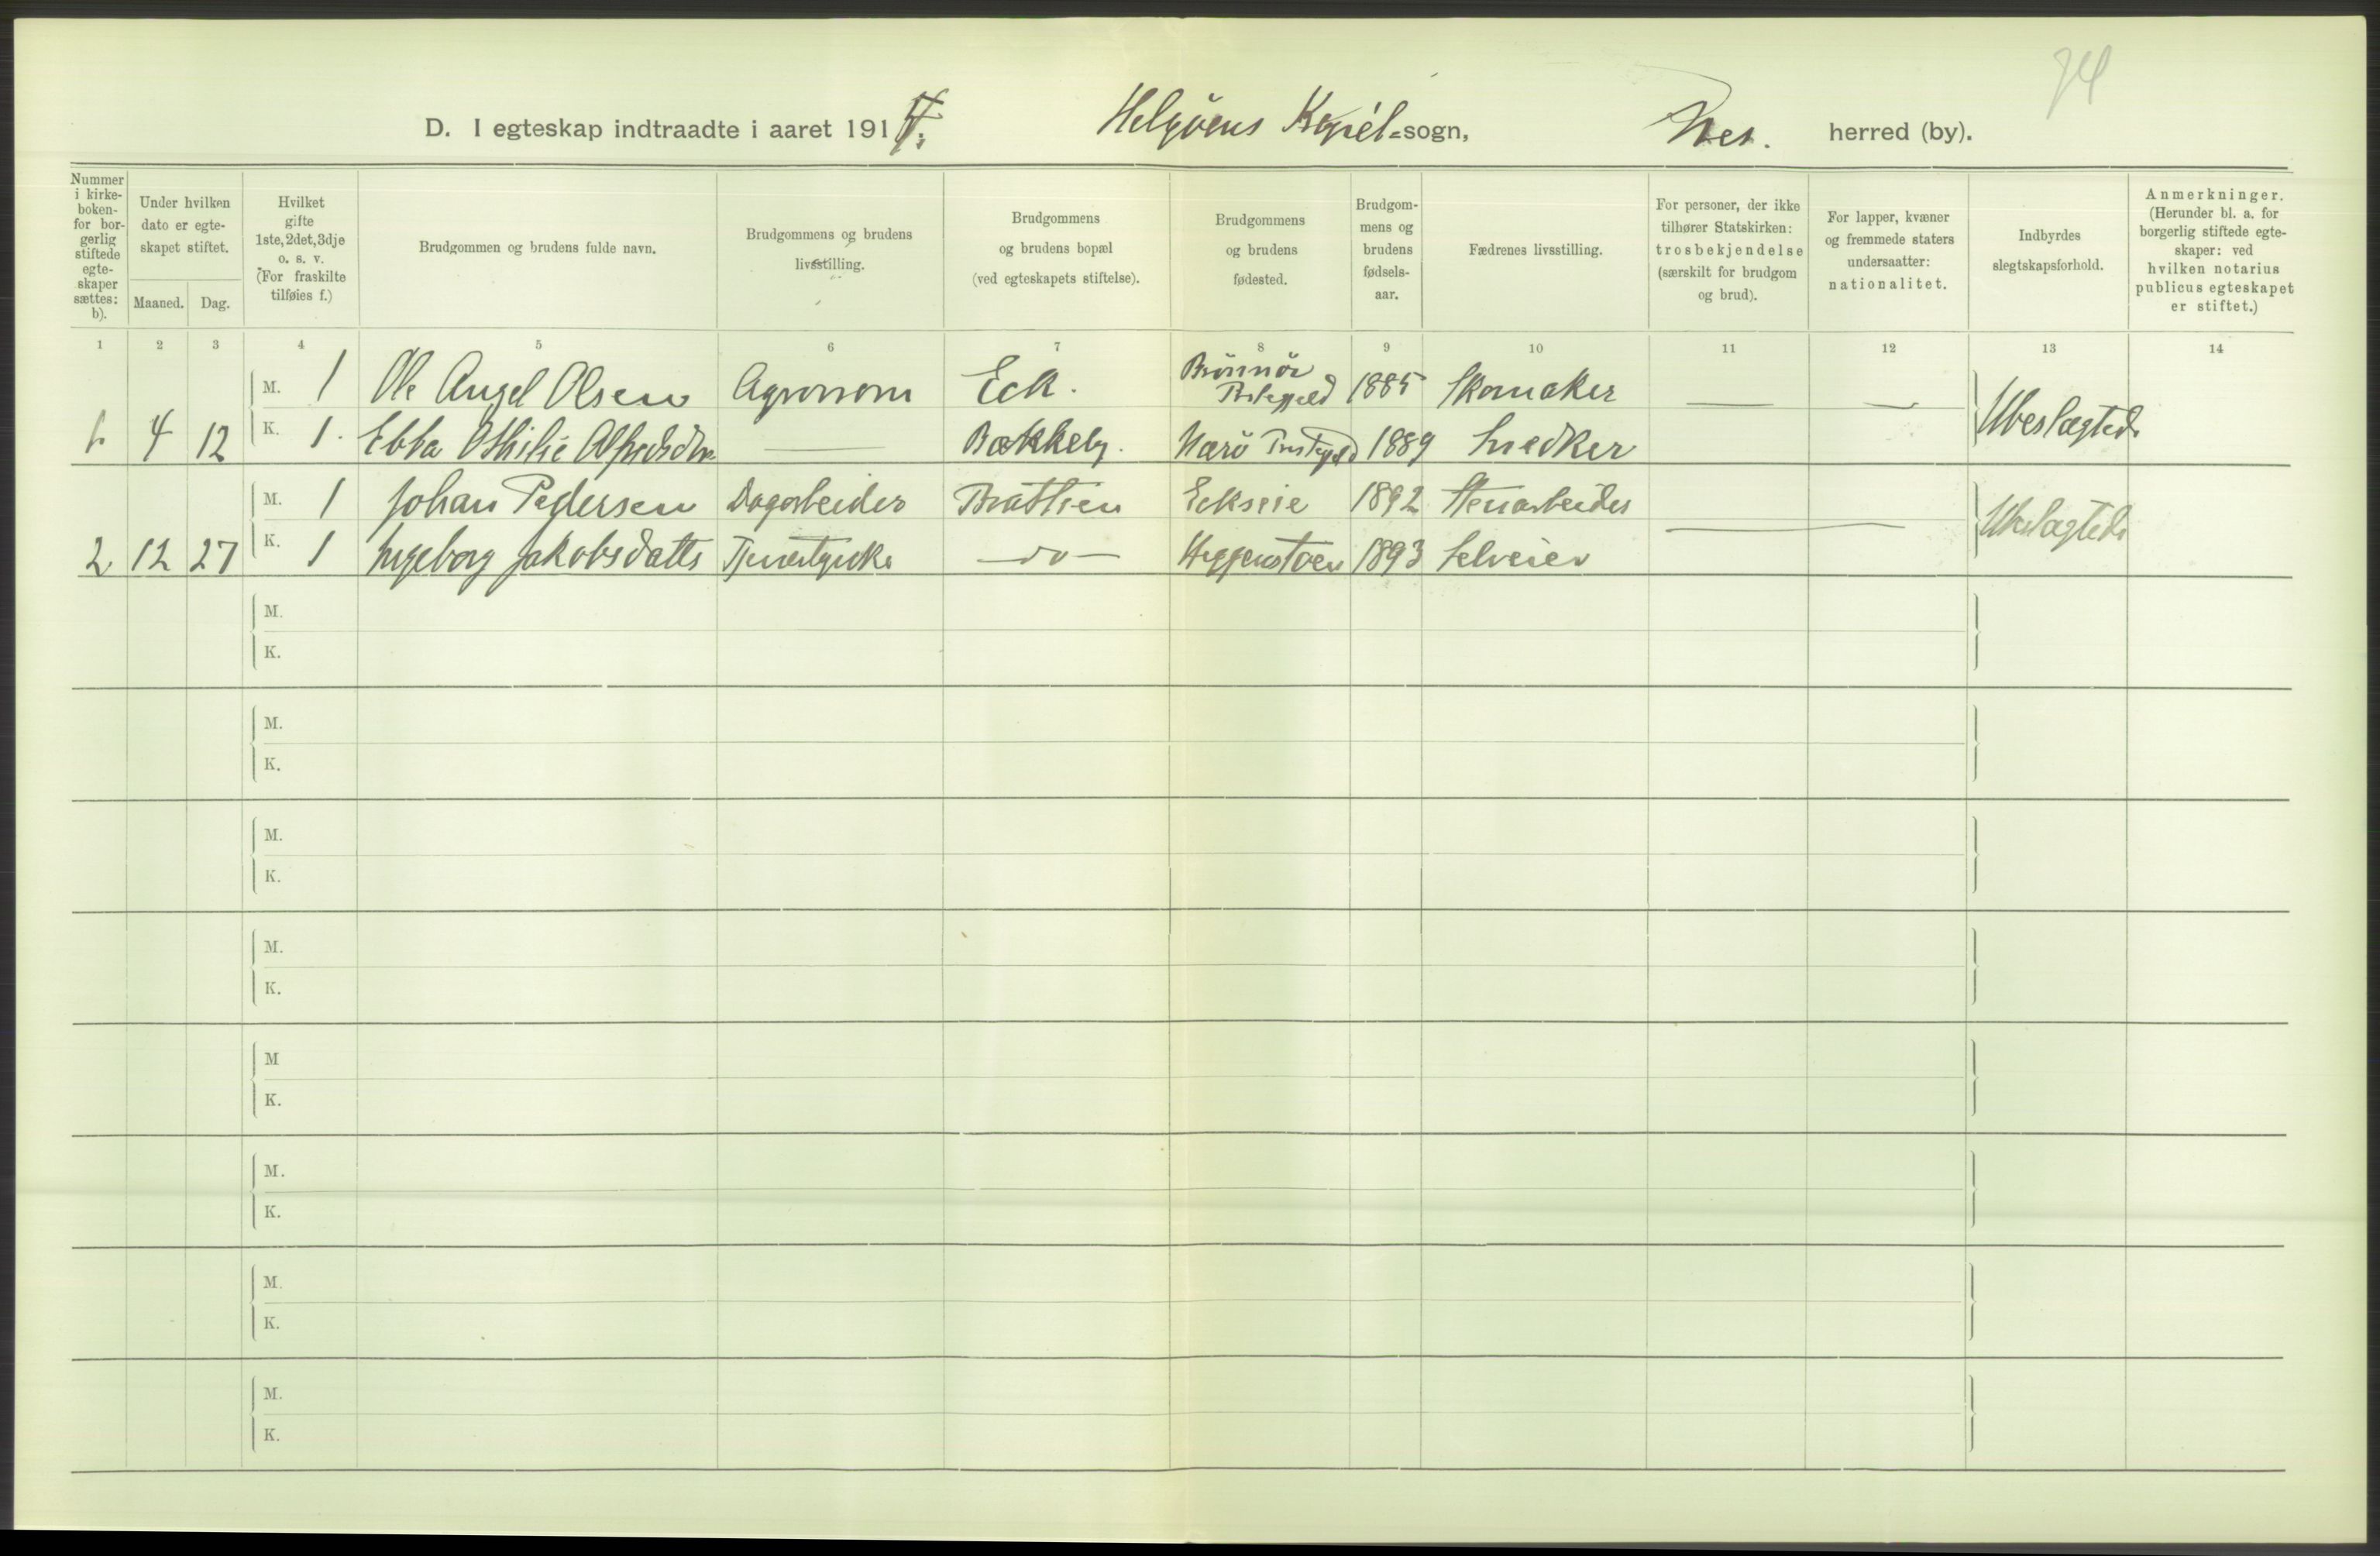 74
D. I egteskap indtraadte i aaret 1914. Helgøens Kapel-sogn, Nes. herred (by).
Nummer i kirke-boken- for bor-gerlig stiftede egte-skaper sættes: b).
Under hvilken dato er egte-skapet stiftet.
Maaned. Dag.
Hvilket gifte 1ste, 2det, 3dje o. s. v. (For fraskilte tilføies f.)
Brudgommen og brudens fulde navn.
Brudgommens og brudens livsstilling.
Brudgommens og brudens bopæl (ved egteskapets stiftelse).
Brudgommens og brudens fødested.
Brudgom-mens og brudens fødsels-aar.
Fædrenes livsstilling.
For personer, der ikke tilhører Statskirken: trosbekjendelse (særskilt for brudgom og brud).
For lapper, kvæner og fremmede staters undersaatter: nationalitet.
Indbyrdes slegtskapsforhold.
Anmerkninger. (Herunder bl. a. for borgerlig stiftede egte-skaper: ved hvilken notarius publicus egteskapet er stiftet.)
1 2 3 4 5 6 7 8 9 10 11 12 13 14
M. 1 Ole Angel Olsen Agronom Eck. Brönnö Prestegjeld 1885 Skomaker — —
1. 4 12 K. 1. Ebba Othilie — Bækkeby. Nærö Prestegjeld 1889 Snedker Ubeslægtede
M. 1 Johan Pedersen Dagarbeider Bratlien Eckseie 1892 Stenarbeider —
2 12 27 K. 1 Ingeborg Jakobsdatter Tjenestepike —do— Heggenstoen 1893 Selveier Ubeslægtede
M.
K.
M.
K.
M.
K.
M.
K.
M
K.
M.
K.
M.
K.
M.
K.